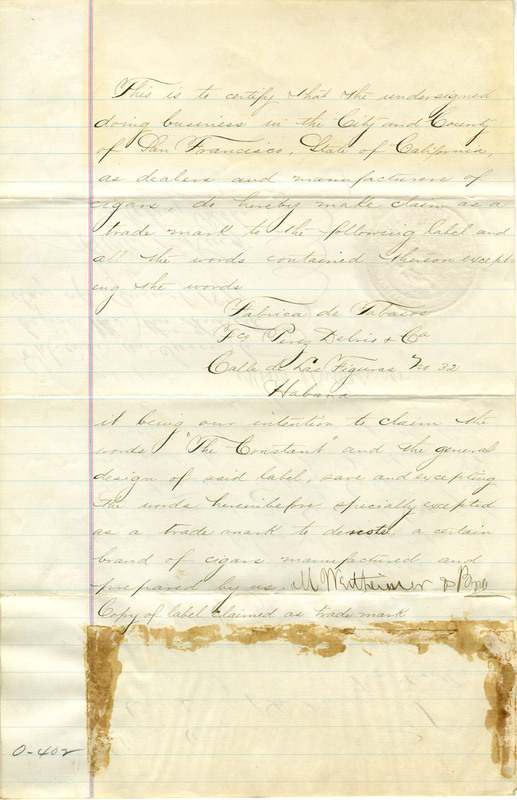 This is to certify that the undersigned
doing business in the City and County
of San Francisco, State of California,
as dealers and manufacturers of
cigars, do hereby make claim as a
trade mark to the following label and
all the words contained thereon except
ing the words
Fabrica de Tabacos
Fco Perez Delrio & Ca
Calle de Las Figuras No 32
Habana
it being our intention to claim the
words "The Constant" and the general
design of said label, save and excepting
the words hereinbefore specially excepted
as a trade mark to denote a certain
brand of cigars manufactured and
prepared by us, M Wertheimer & Bro
Copy of label claimed as trade mark
0-402